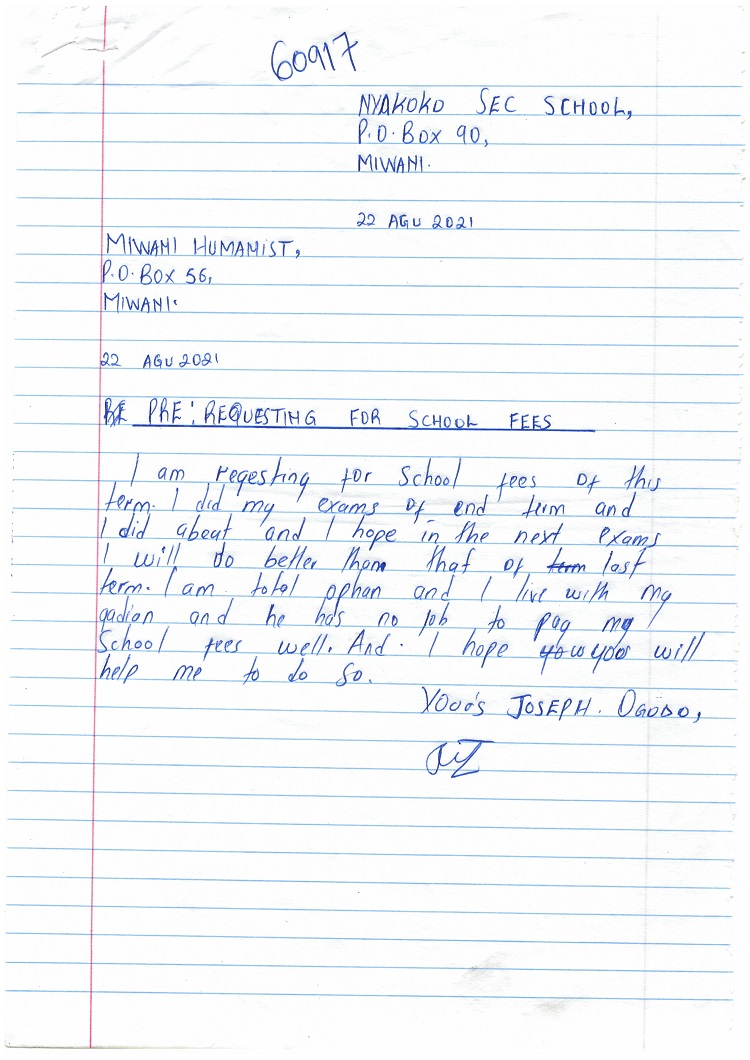 60917
NYAKOKO SEC SCHOOL,
P.O. BOX 90,
MIWANI.
22 AGU 2021
MIWANI HUMANIST,
P.O. BOX 56,
MIWANI.
22 AGU 2021
PRE: REQUESTING FOR SCHOOL FEES
I am reqesting for School fees of this
term. I did my exams of end term and
I did abeut and I hope in the next exams
I will do better them that of term last
term. I am total ophan and I live with my
gadian and he has no job to pay my
School fees well. And. I hope you will
help me to do so.
JOSEPH. OGODO,